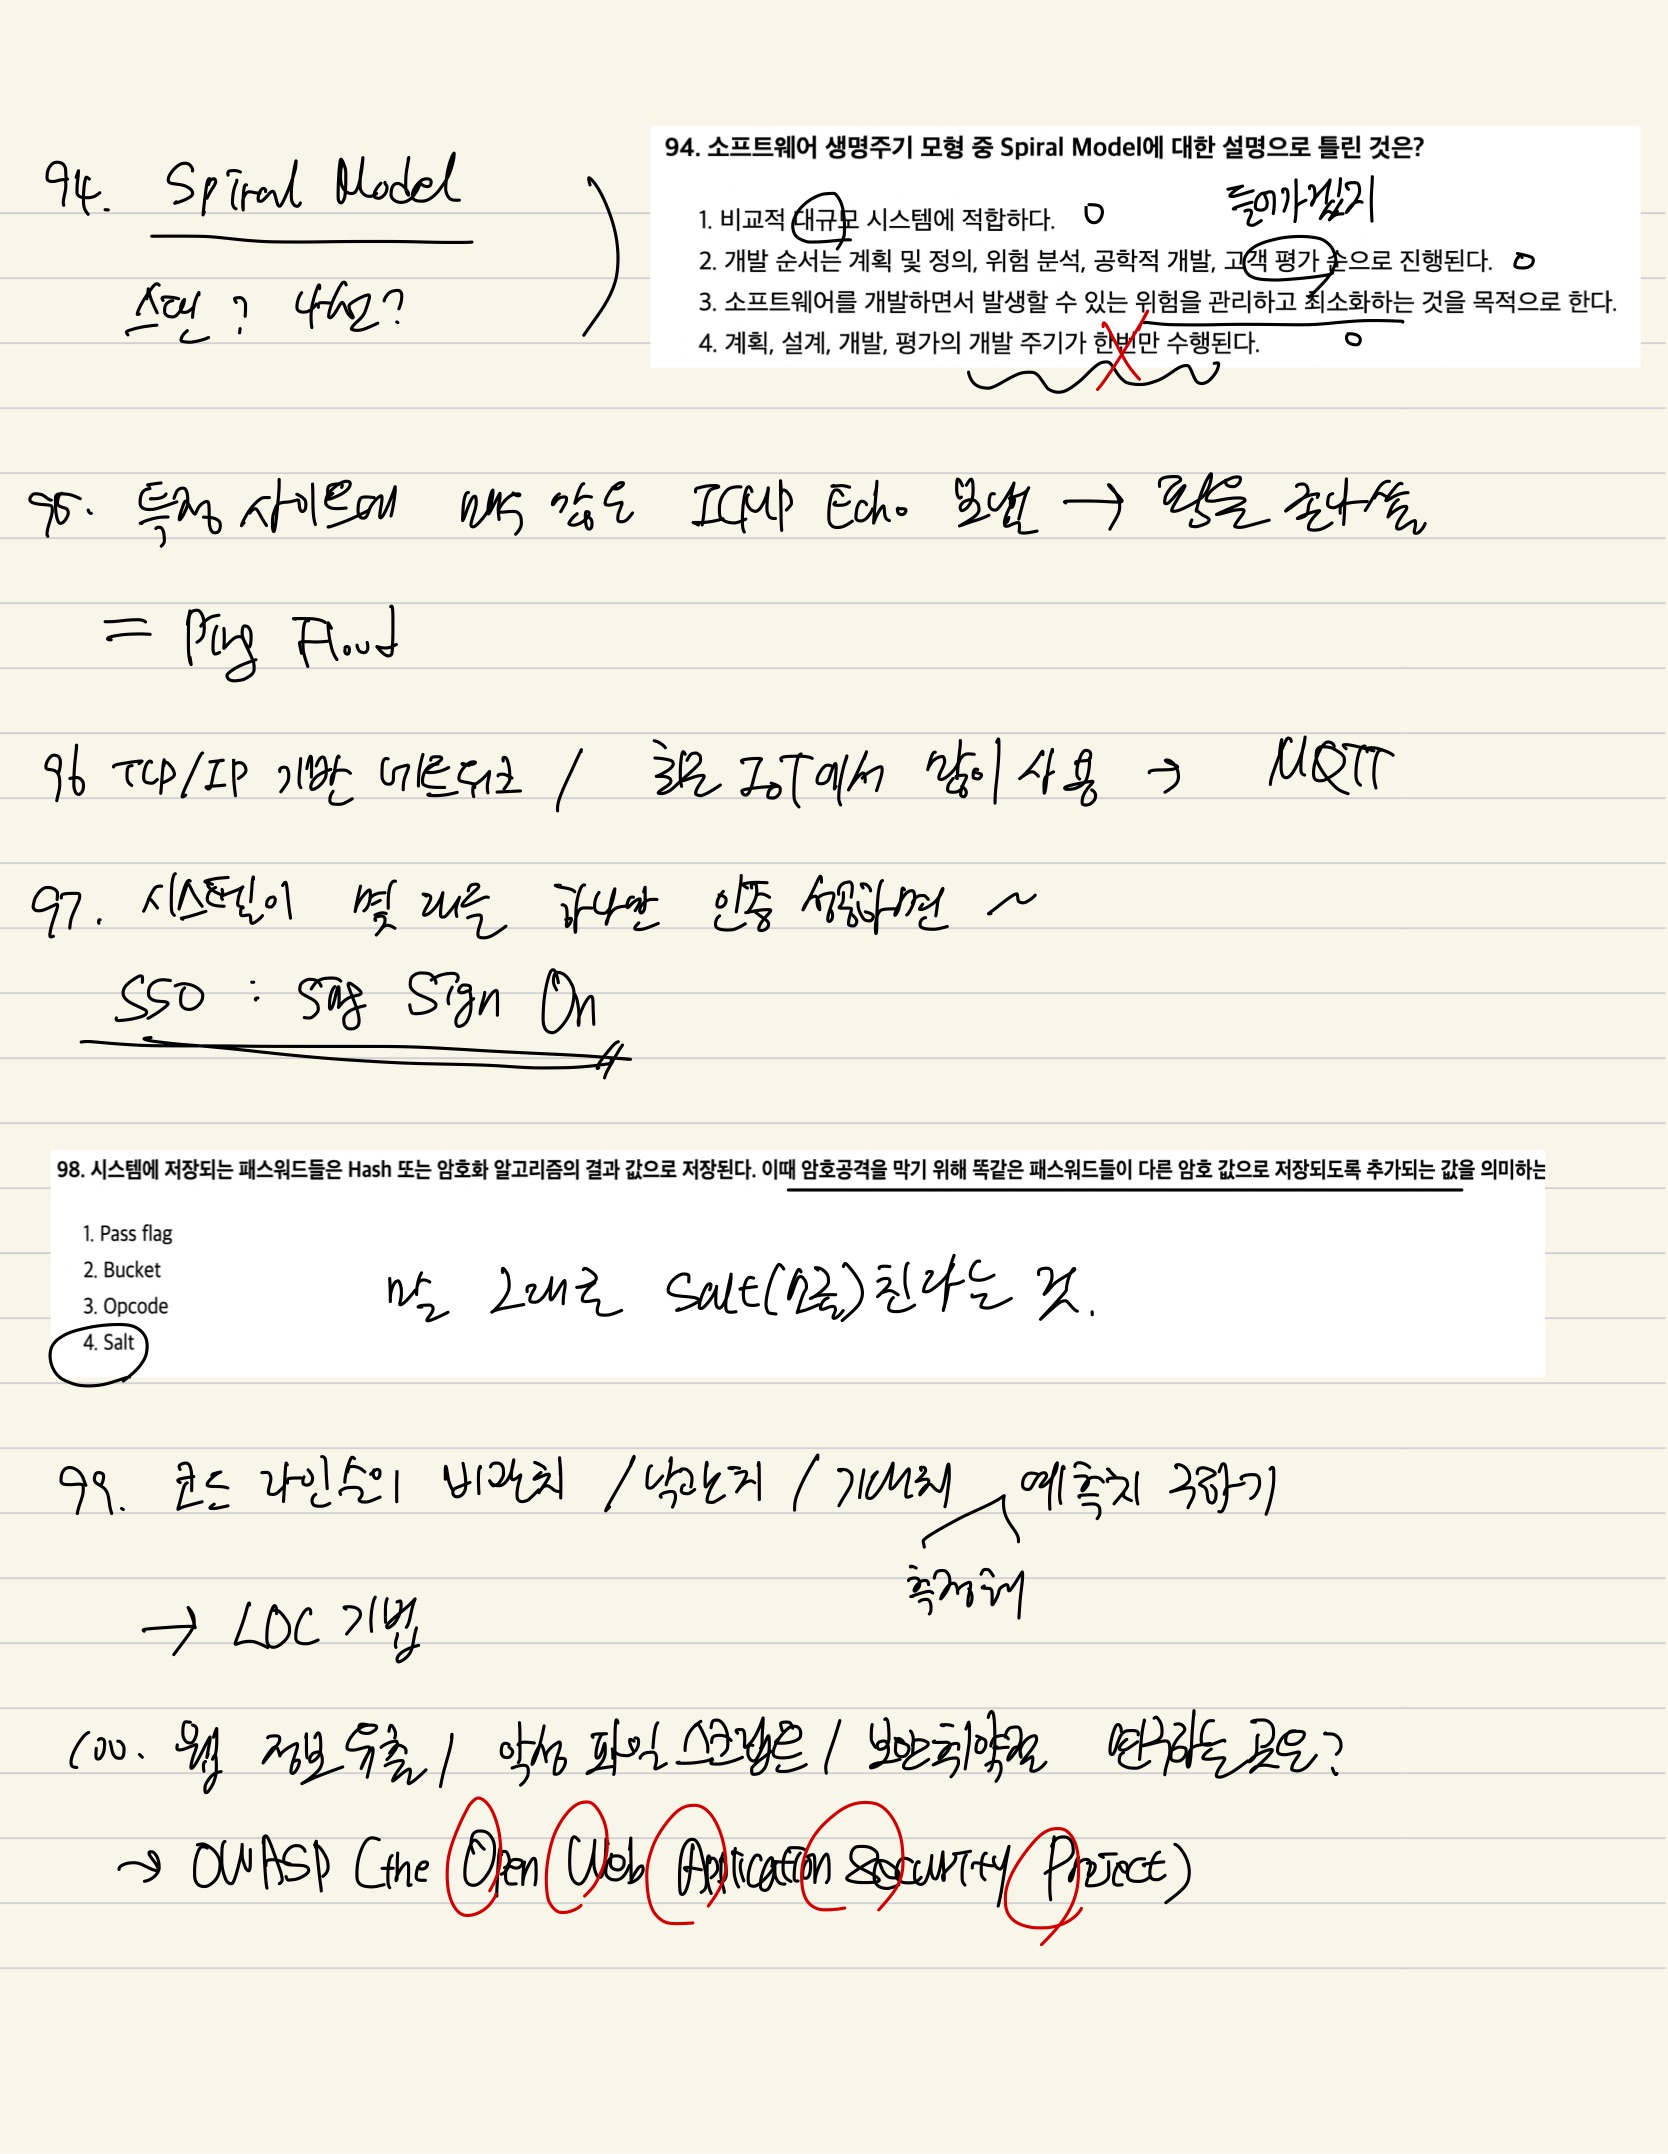 94. Spiral Model
나선?
94. 소프트웨어 생명주기 모형 중 Spiral Model에 대한 설명으로 틀린 것은?
들어가겠지
1. 비교적 대규모 시스템에 적합하다.
2. 개발 순서는 계획 및 정의, 위험 분석, 공학적 개발, 고객 평가 순으로 진행된다.
3. 소프트웨어를 개발하면서 발생할 수 있는 위험을 관리하고 최소화하는 것을 목적으로 한다.
4. 계획, 설계, 개발, 평가의 개발 주기가 한번만 수행된다.
95. 특정 사이트에 ICMP Echo 보냄 → 핑을
= Ping Flood
96 TCP/IP 기반 네트워크 / 혹은 IoT에서 많이 사용 → MQTT
97. 시스템이 몇 개든 하나만 인증 성공하면 ~
SSO : Sing Sign On
98. 시스템에 저장되는 패스워드들은 Hash 또는 암호화 알고리즘의 결과 값으로 저장된다. 이때 암호공격을 막기 위해 똑같은 패스워드들이 다른 암호 값으로 저장되도록 추가되는 값을 의미하는
1. Pass flag
2. Bucket
3. Opcode
4. Salt
말 그대로 Salt(소금)친다는 것.
99. 코드 라인수의 비관치 / 낙관치 / 기대치 예측치 구하기
측정해
→ LOC 기법
100. 웹 정보 유출 / 악성 파일 스크립트 / 보안취약점 연구하는 곳은?
→ OWASP (the Open Web Application Security Project)